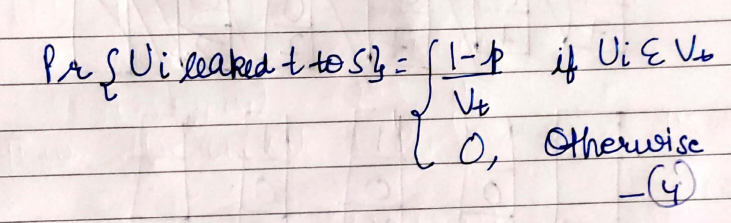 Pr { Ui leaked t to S } = { 1-p / Vt if Ui ε Vt
0, Otherwise
-(4)